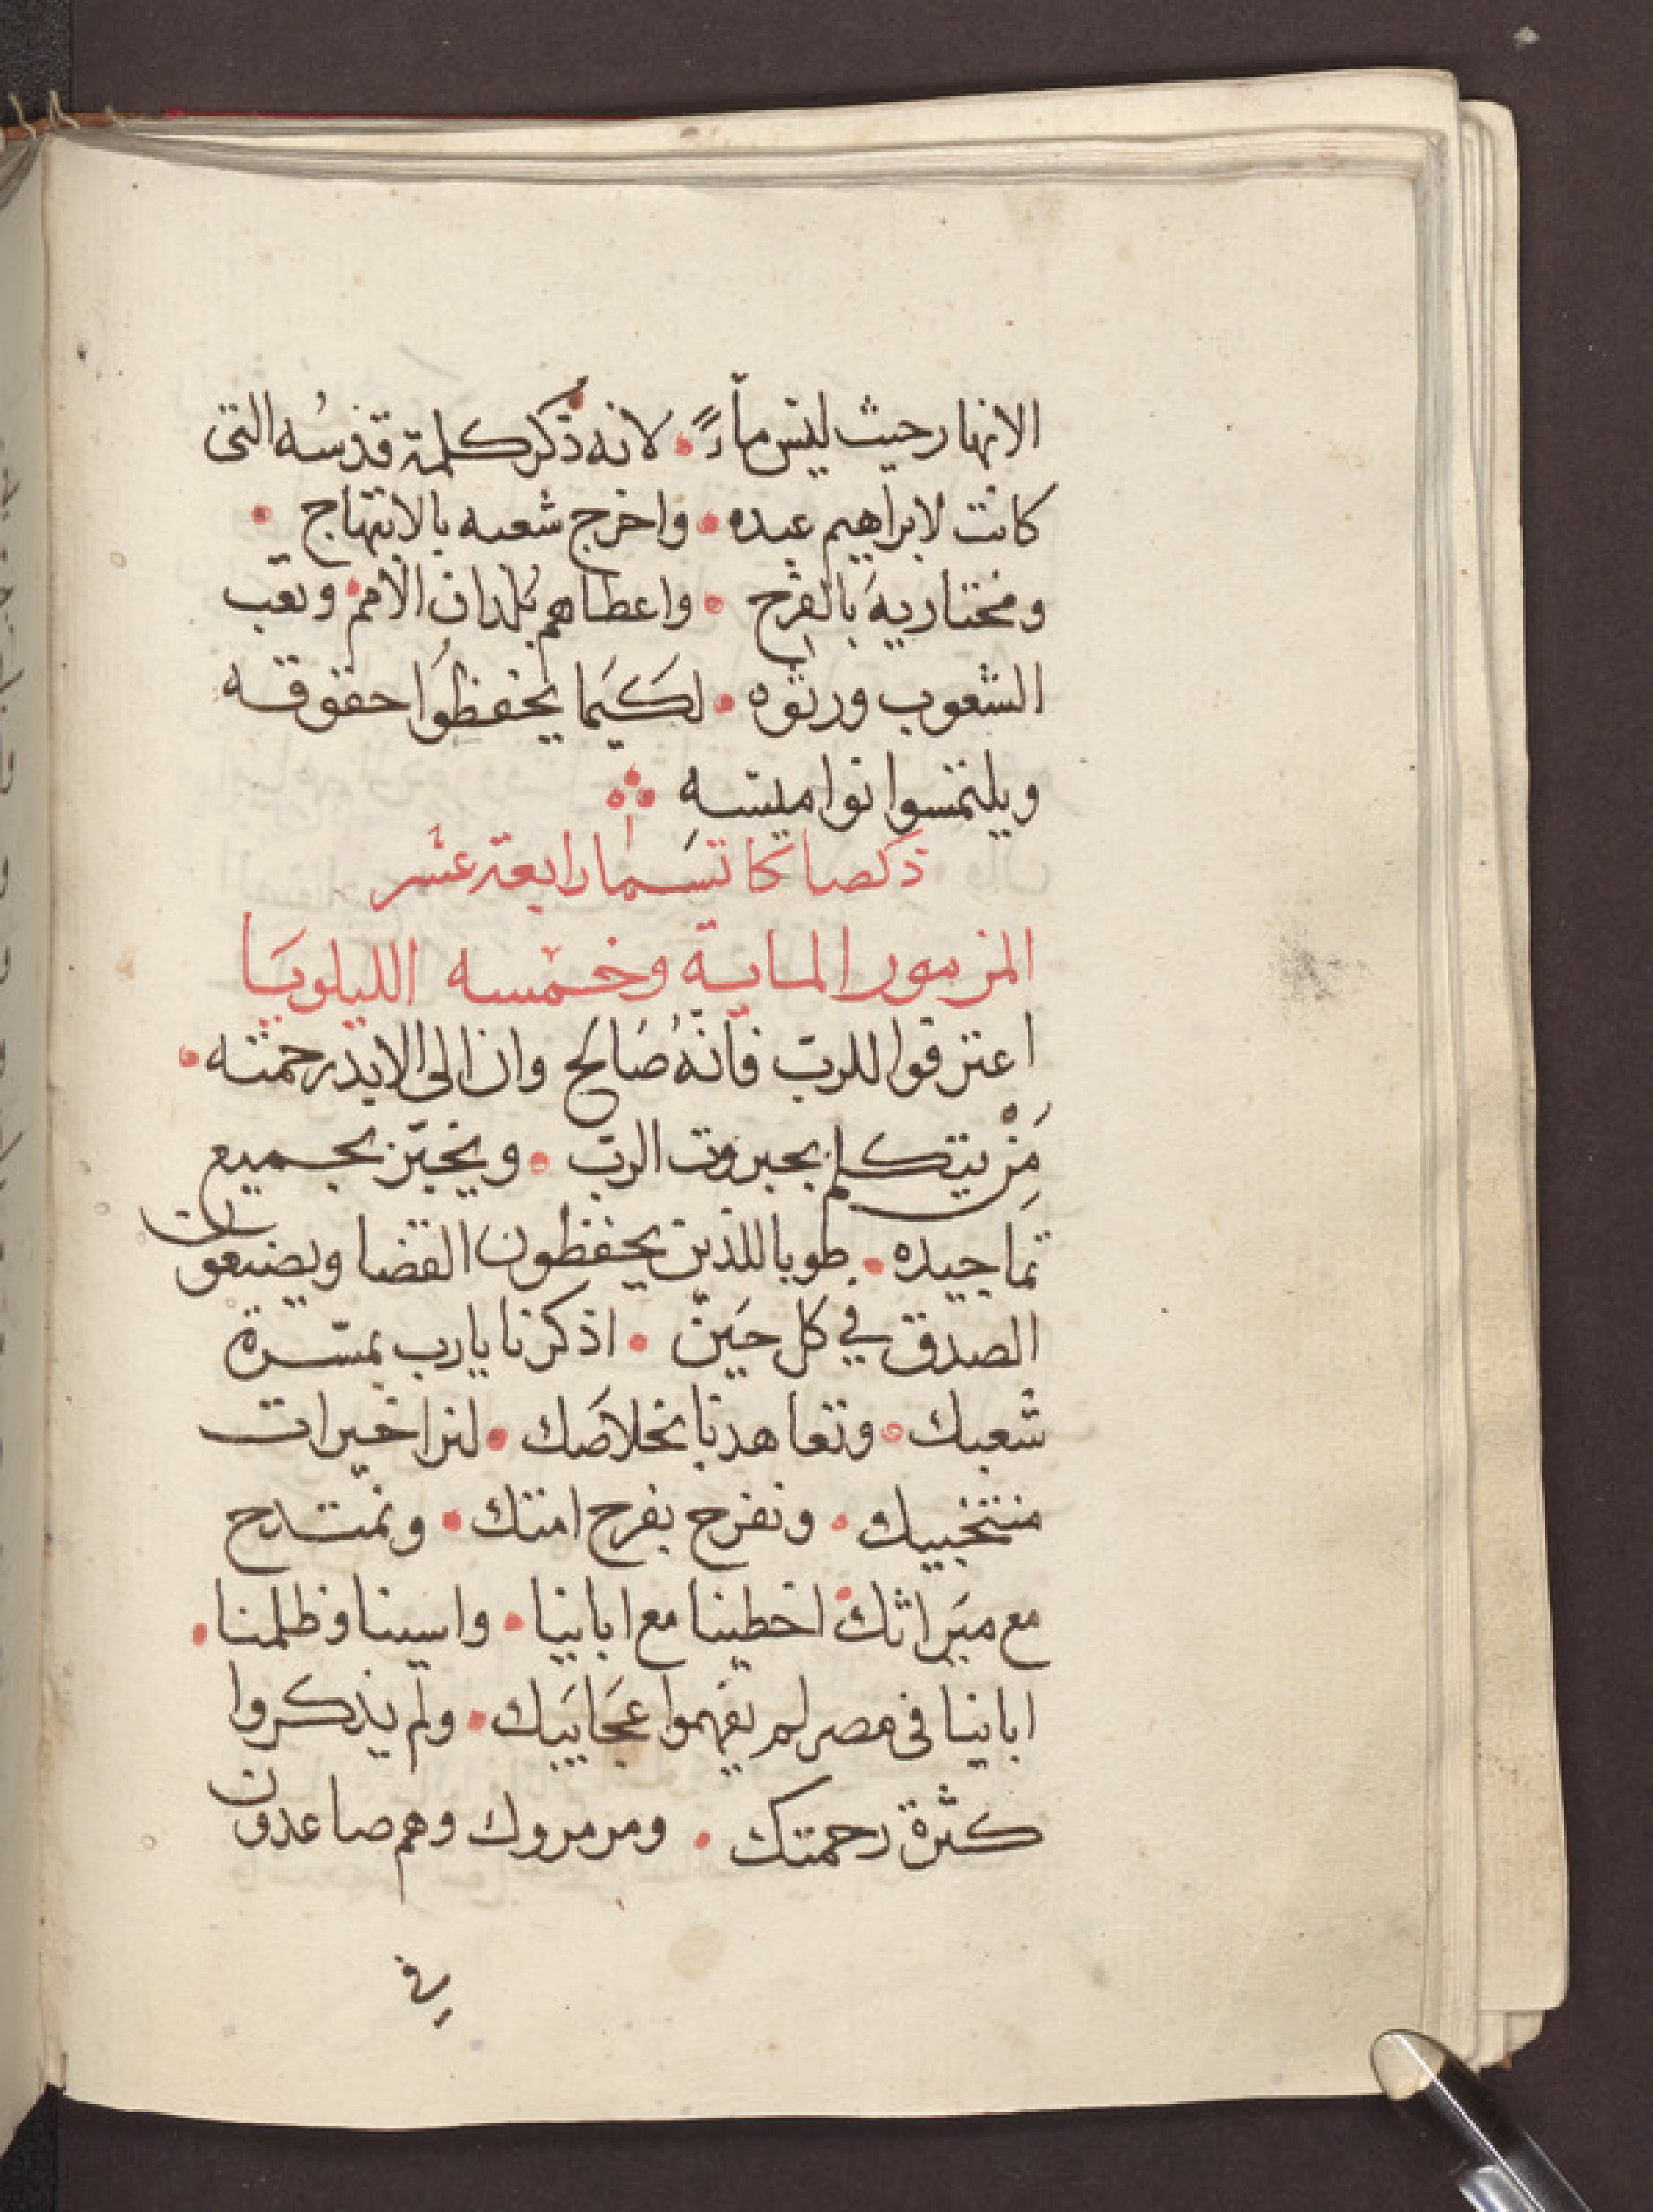 الانهار حيث ليس ماءً • لانه ذكر كلمة قدسه التى
كانت لابراهيم عبده • واخرج شعبه بالابتهاج •
ومختاريه بالفرح • واعطاهم بلدان الامم • وتعب
الشعوب ورثوه • لكيما يحفظوا حقوقه
ويلتمسوا نواميسه
ذكصا كاتسما رابعة عشر
المزمور الماية وخمسه الليلويا
اعترفوا للرب فانه صالح وان الى الابد رحمته •
من يتكلم بجبروت الرب • ويخبر بجميع
تماجيده • طوبا للذين يحفظون القضا ويصنعون
الصدق في كل حين • اذكرنا يارب بمسرة
شعبك • وتعاهدنا بخلاصك • لنرا خيرات
منتخبيك • ونفرح بفرح امتك • ونمتدح
مع ميراثك • اخطينا مع ابابينا • واسينا وظلمنا •
اباينا فى مصر لم يفهموا عجاييبك • ولم يذكروا
كثرة رحمتك • ومرمروك وهم صاعدون
في